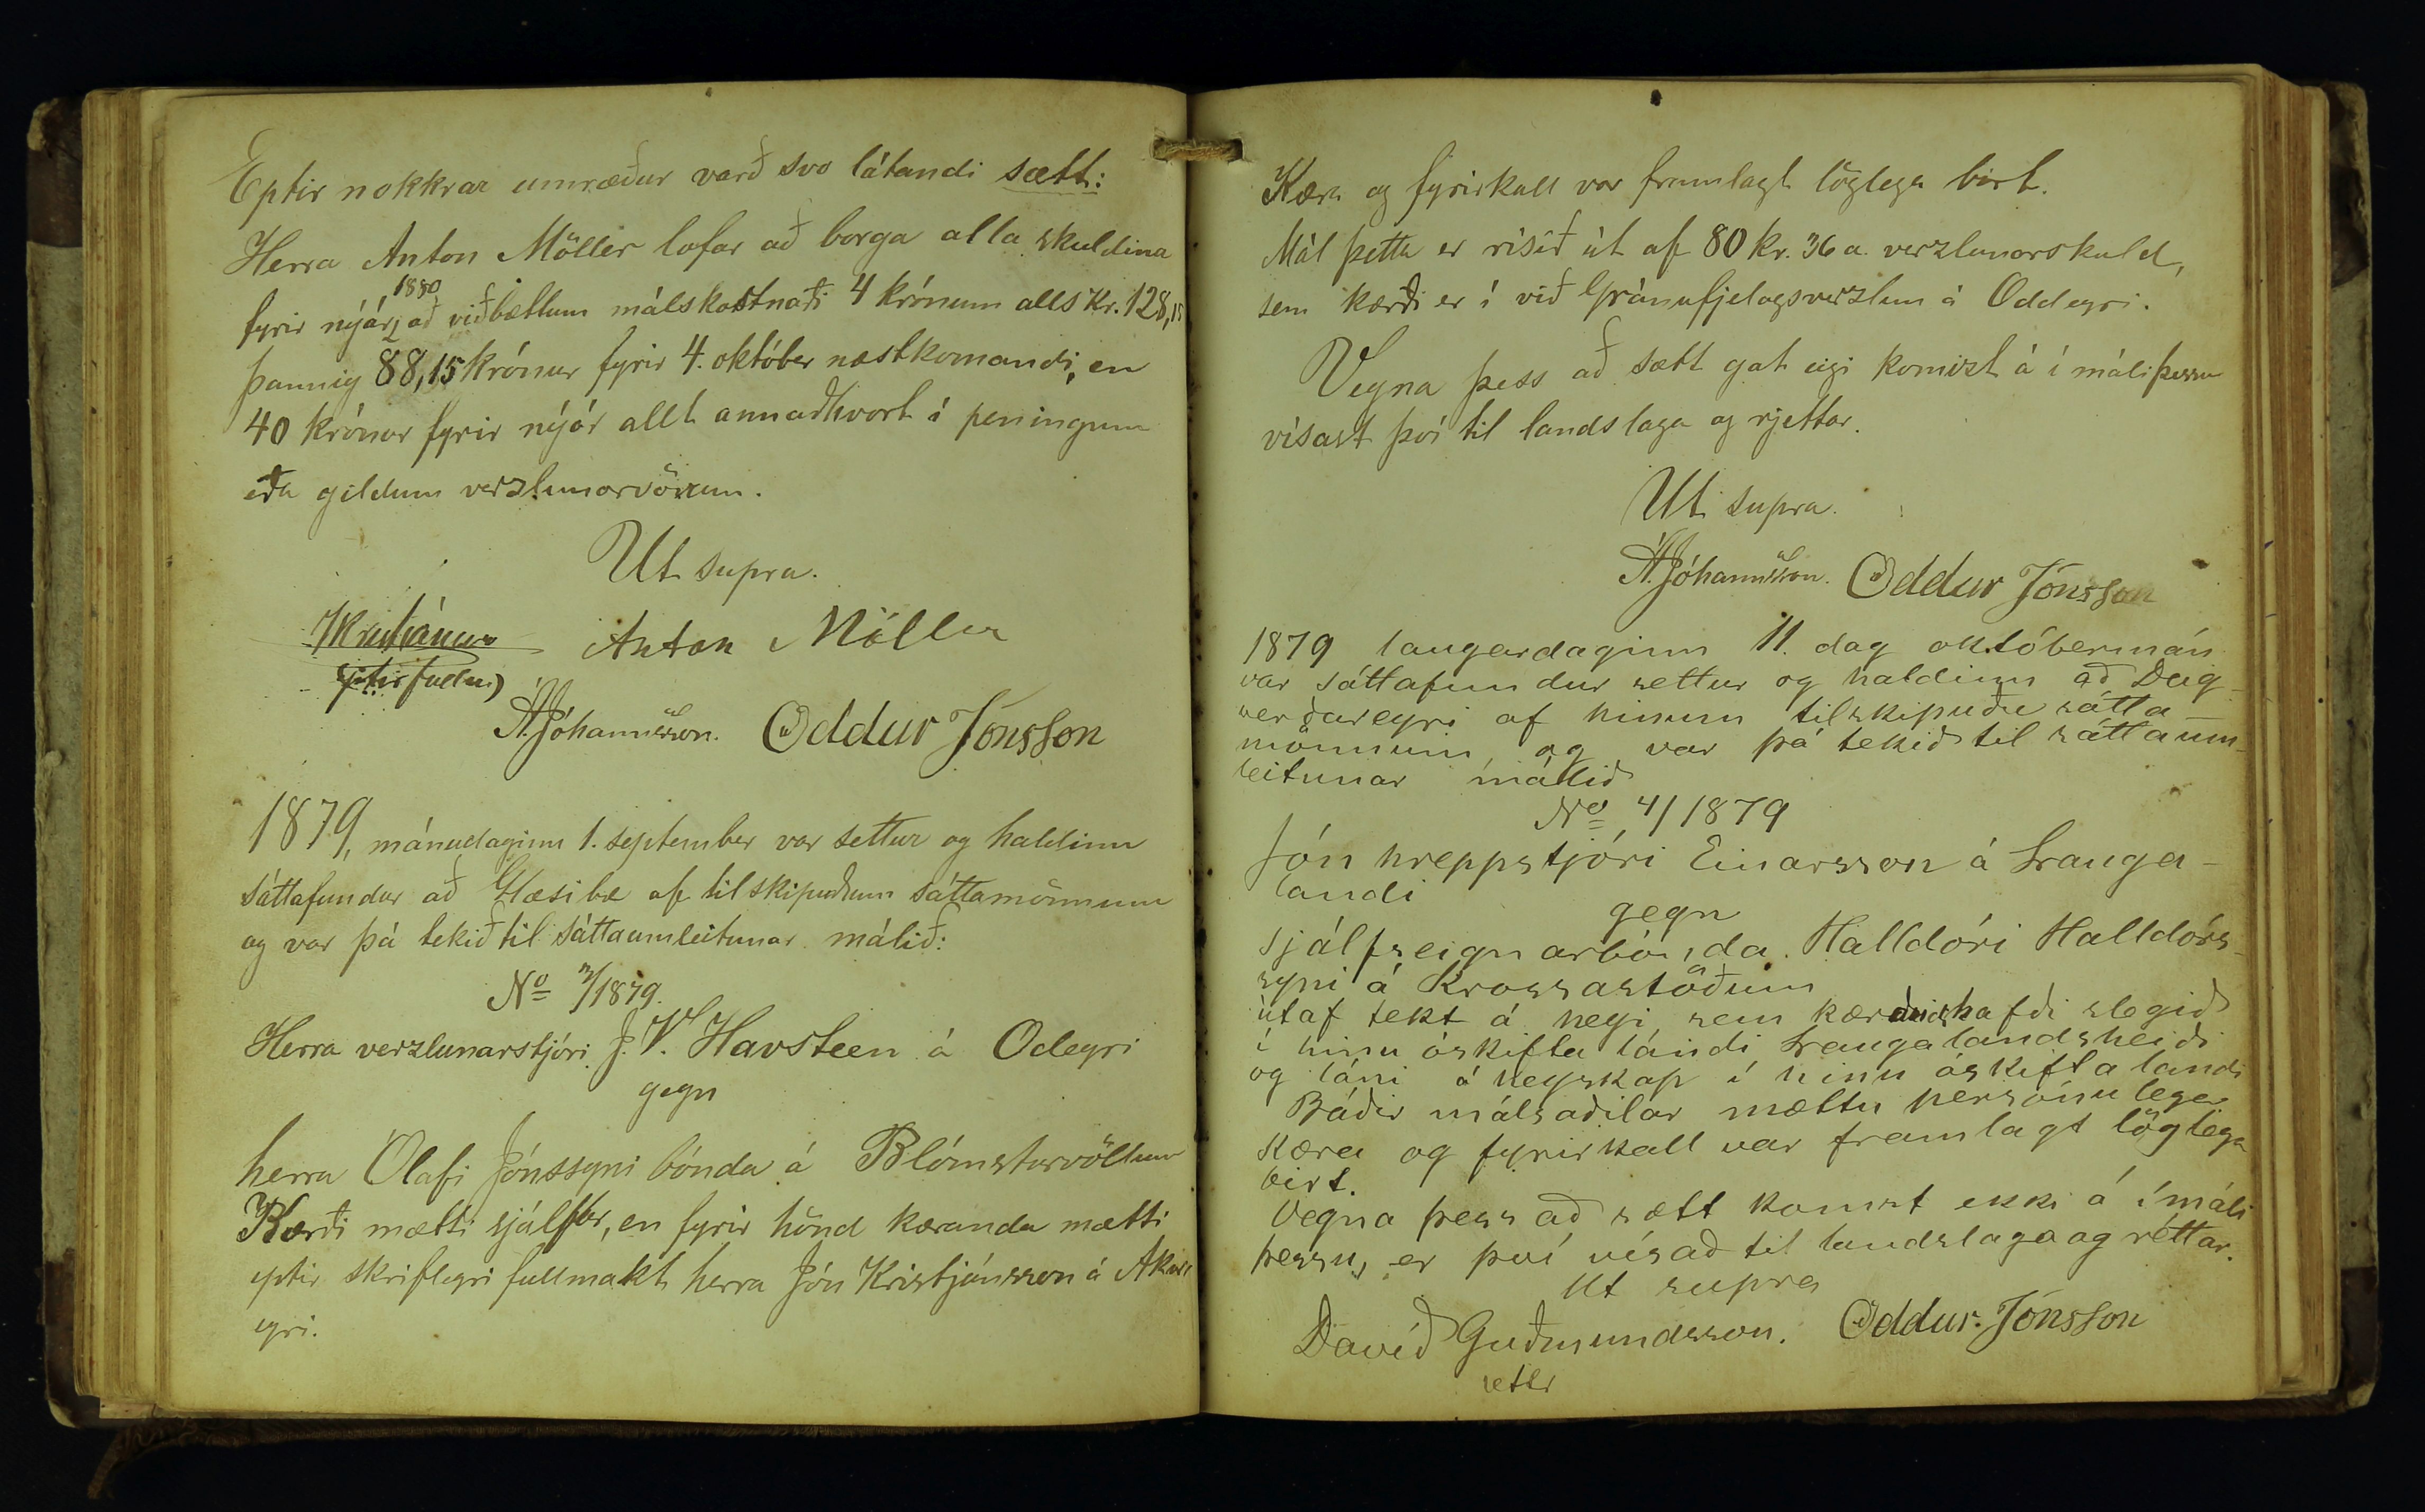 Eptir nokkrar umræður varð svo látandi sætt:
Herra Anton Möller lofar að borga alla skuldina
fyrir nýár 1880 að viðbættum málskostnaði 4 krónum alls Kr. 128,15
þannig 88,15 krónur fyrir 4. október næstkomandi, en
40 krónur fyrir nýár allt annaðhvort í peningum
eða gildum verzlunarvörum.
Ut supra.
Anton Möller
eptir fullm)
Á. Jóhannsson. Oddur Jónsson
1879, mánudaginn 1. september var settur og haldinn
sáttafundur að Glæsibæ af tilskipuðum sáttamönnum
og var þá tekið til sáttaumleitunar málið:
No 3/1879.
Herra verzlunarstjóri J. V. Havsteen á Odeyri
gegn
herra Olafi Jónssyni bónda á Blómsturvöllum
Kærði mætti sjálfur, en fyrir hönd kæranda mætti
eptir skriflegri fullmakt herra Jón Kristjánsson á Akur
eyri.
Kæra og fyrirkall var framlagt löglega birt.
Mál þetta er risið út af 80 kr. 36 a. verzlunarskuld,
sem kærði er í við Gránufjelagsverzlun á Oddeyri.
Vegna þess að sætt gat eigi komizt á í máli þessu
vísast því til landslaga og rjettar.
Ut supra.
Á. Jóhannsson. Oddur Jónsson
1879 laugardaginn 11. dag októbermán
var sáttafundur settur og haldinn að Dag-
verðareyri af hinum tilskipuðu sátta-
mönnum, og var þá tekið til sáttaum-
leitunar málið
No 4/1879
Jón hreppstjóri Einarsson á Lrauga-
landi
gegn
sjálfseignarbónda Halldóri Halldórs-
syni á Krossastöðum
útaf tekt á heyi, sem kærði hafði slegið
í hinu óskifta landi Lraugalandsheiði
og láni á heyskap í hinu óskifta landi
Báðir málsaðilar mættu persónulega
Kæra og fyrirkall var framlagt löglega
birt.
Vegna þess að sætt komst ekki á í máli
þessu, er því vísað til landslaga og réttar.
Ut supra
Davíð Guðmundsson. Oddur Jónsson
settr